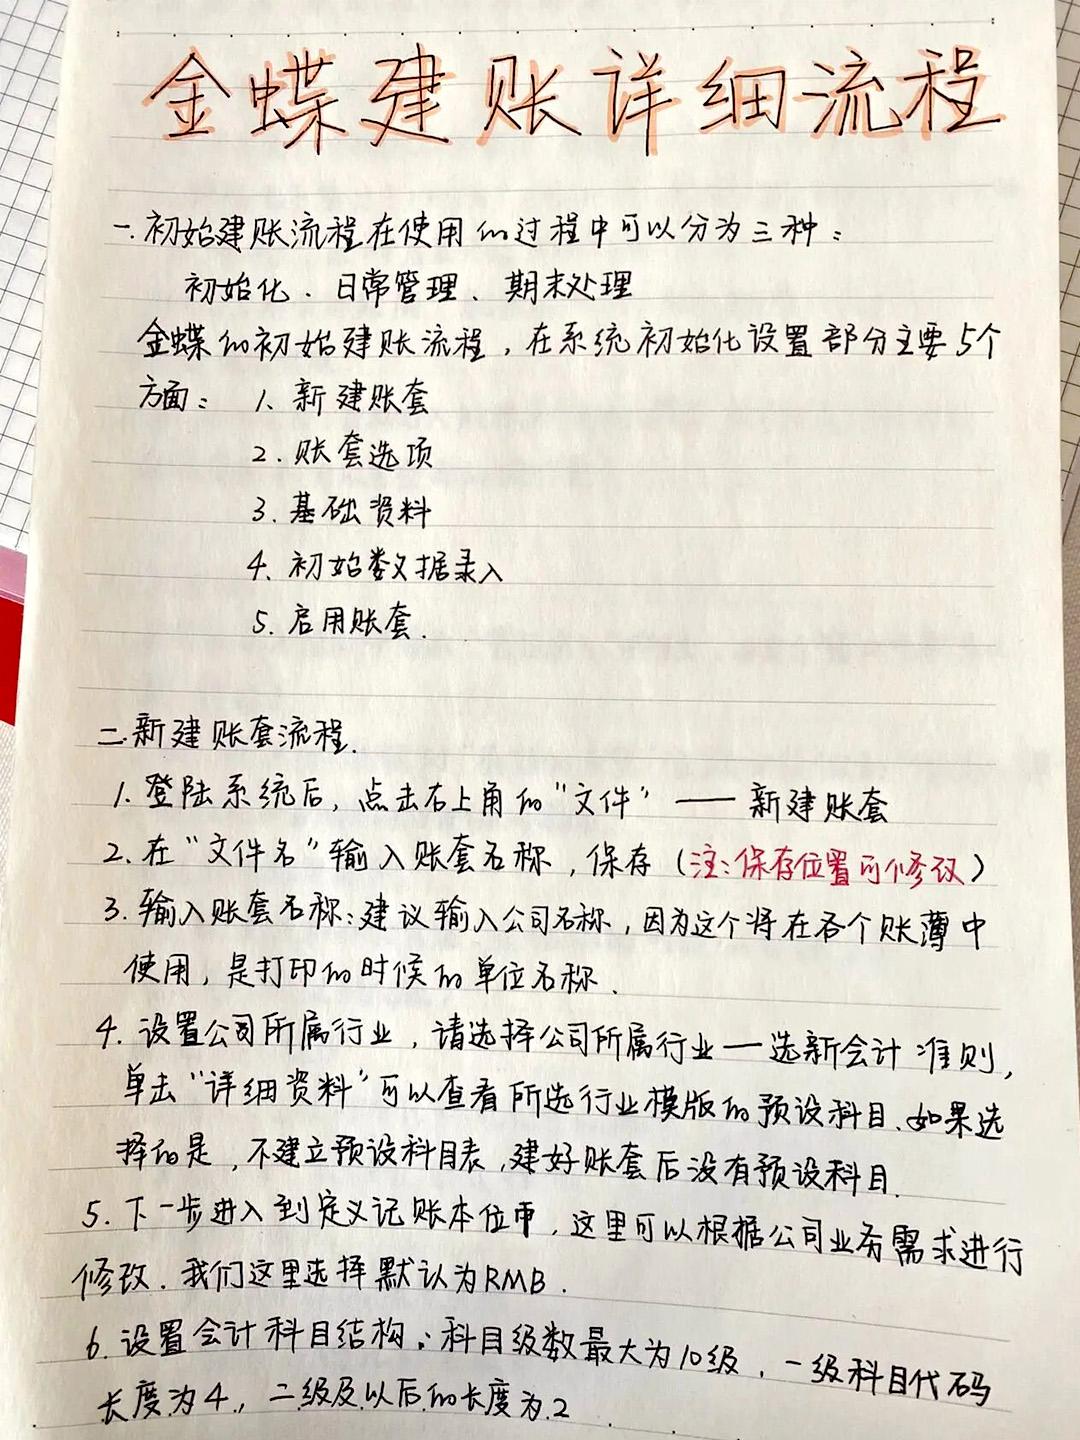 金蝶建账详细流程
一.初始建账流程在使用的过程中可以分为三种：
初始化、日常管理、期末处理
金蝶的初始建账流程，在系统初始化设置部分主要5个
方面： 1、新建账套
2.账套选项
3.基础资料
4、初始数据录入
5.启用账套.
二.新建账套流程.
1.登陆系统后，点击右上角的“文件” —— 新建账套
2.在“文件名”输入账套名称，保存（注：保存位置可修改）
3.输入账套名称：建议输入公司名称，因为这个将在各个账薄中
使用，是打印的时候的单位名称.
4.设置公司所属行业，请选择公司所属行业—选新会计准则，
单击“详细资料”可以查看所选行业模版的预设科目.如果选
择的是，不建立预设科目表，建好账套后没有预设科目.
5.下一步进入到定义记账本位币，这里可以根据公司业务需求进行
修改.我们这里选择默认为RMB.
6.设置会计科目结构：科目级数最大为10级，一级科目代码
长度为4，二级及以后的长度为2